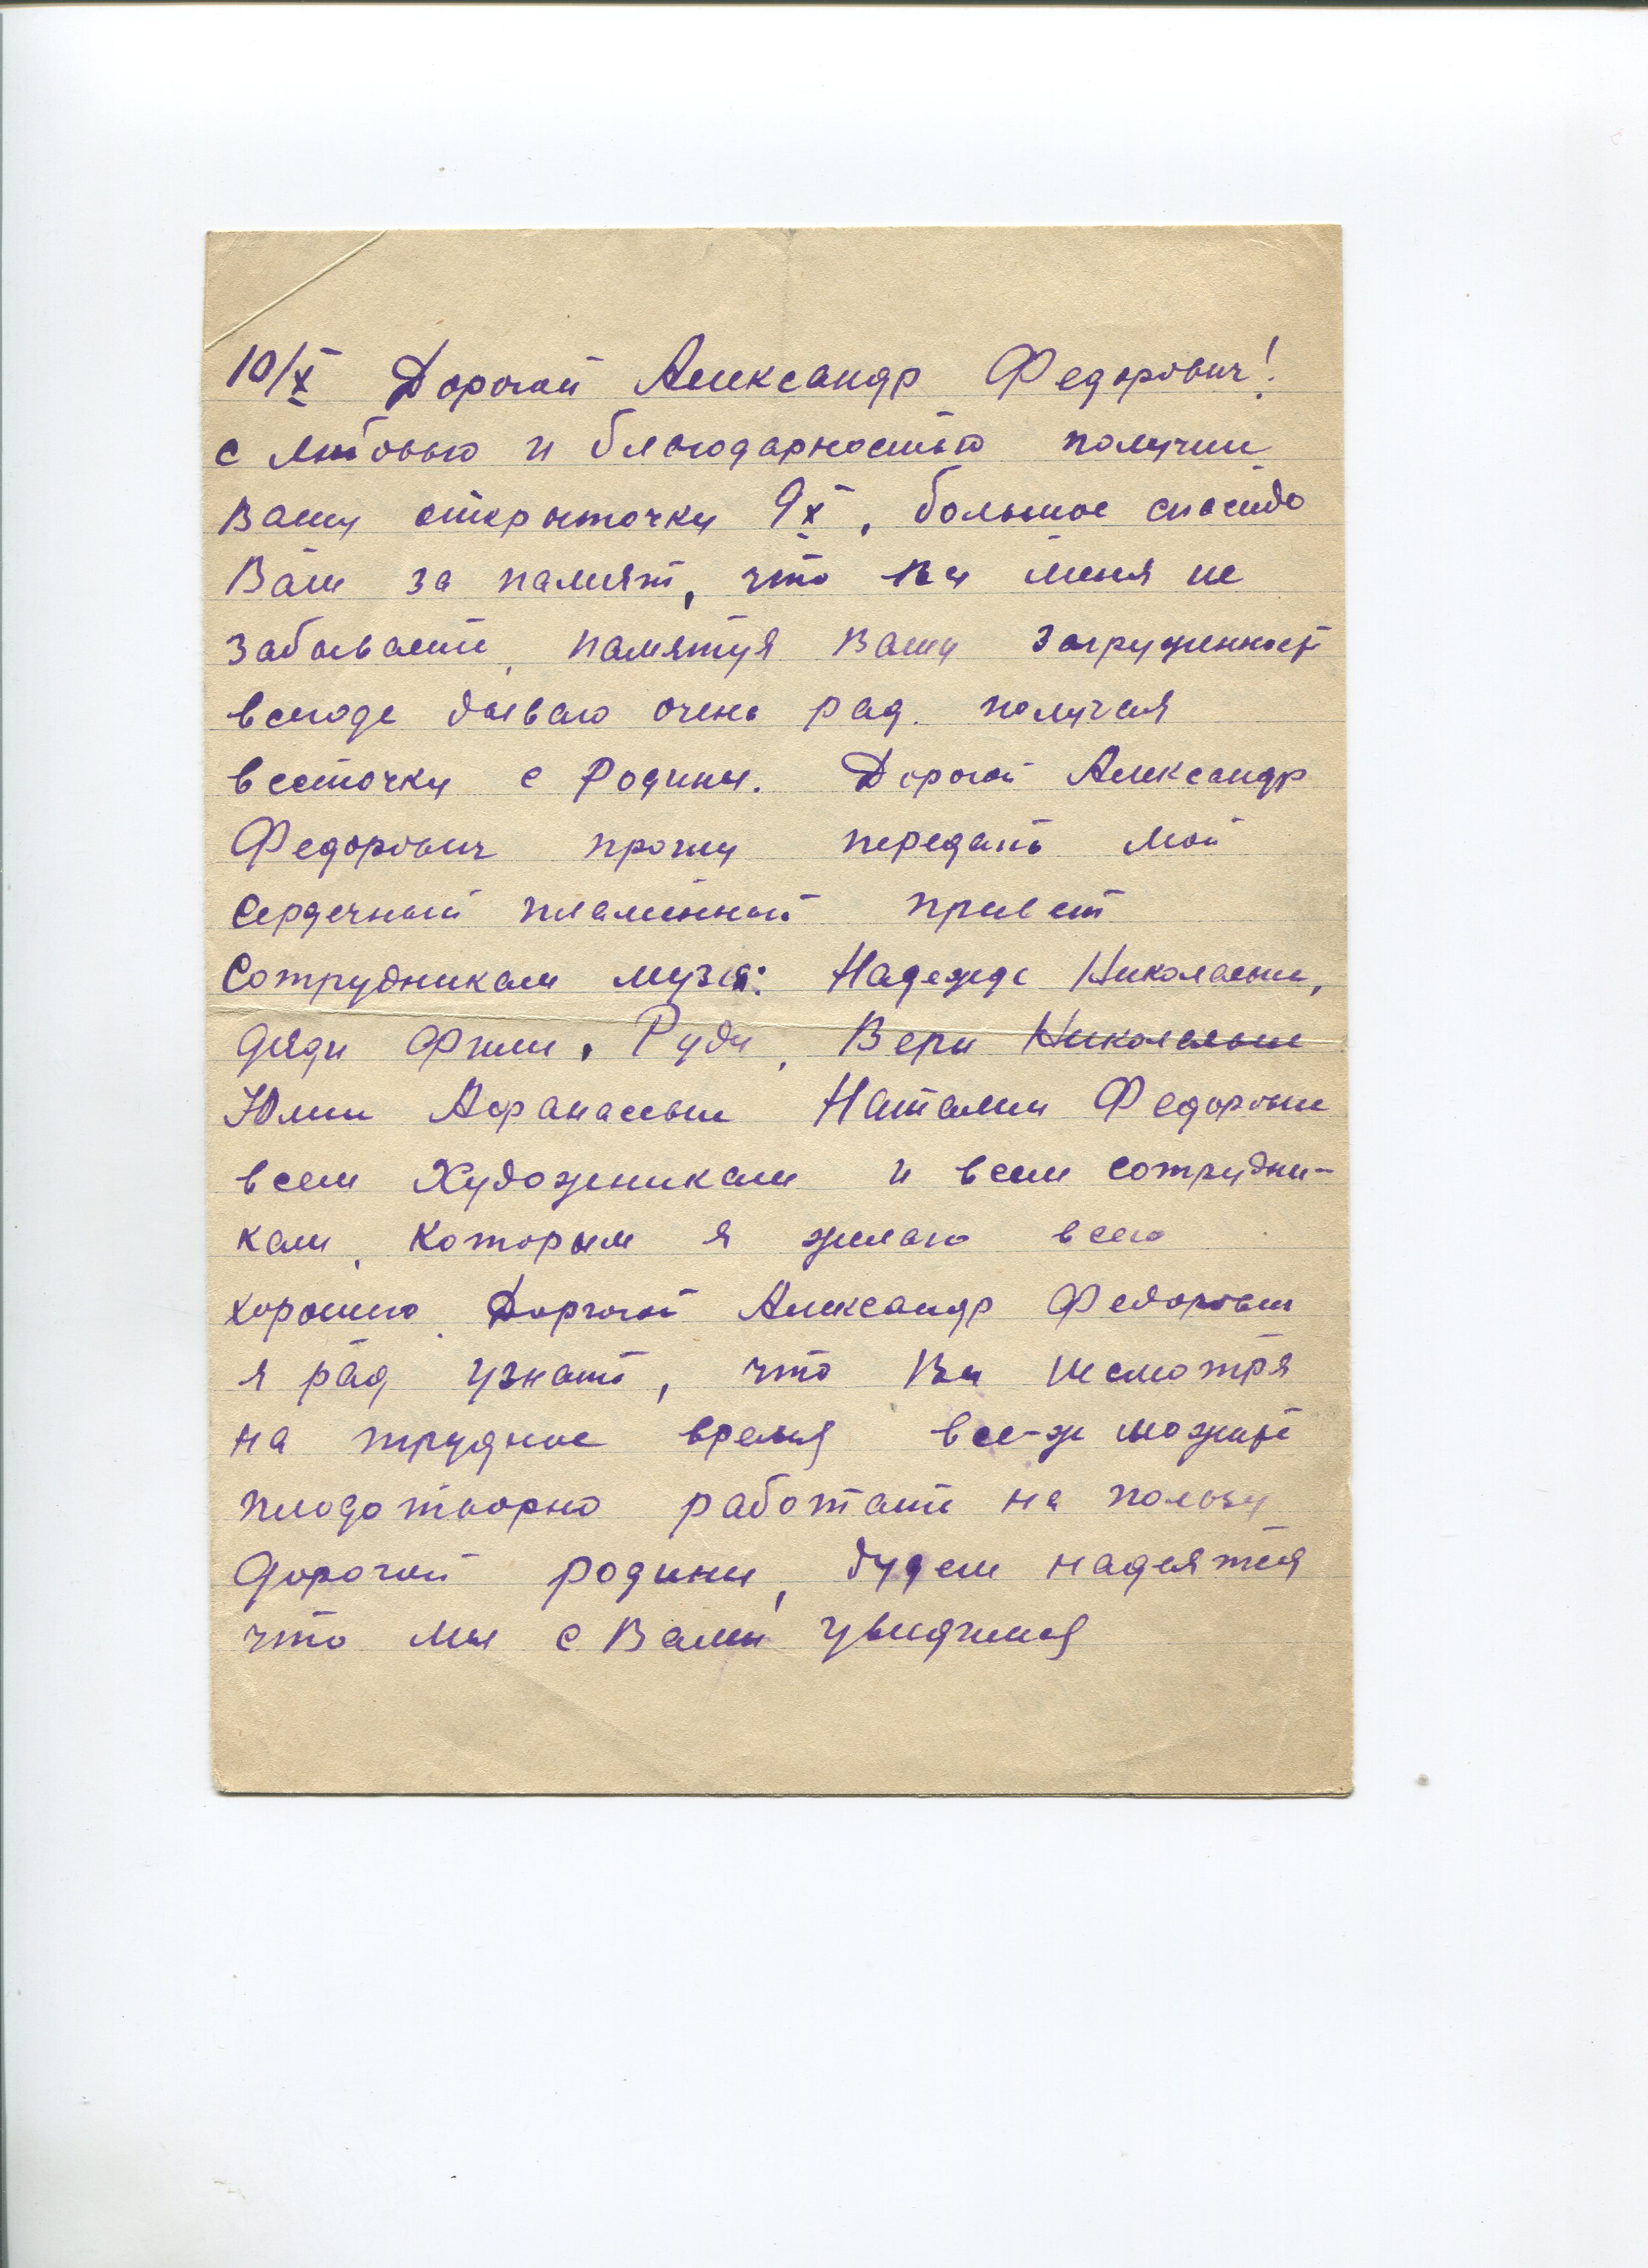 10/X Дорогой Александр Федорович!
с любовью и благодарностью получил
Вашу открыточку 9X, большое спасибо
Вам за память, что Вы меня не
забываете, памятуя Вашу загруженность
всегда бываю очень рад. получая
весточку с Родины. Дорогой Александр
Федорович прошу передать мой
сердечный пламенный привет
Сотрудникам музея: Надежде Николаевне,
дяди Фили, Руди, Вери Николаевне
Юлии Афанасьевне Наталии Федоровне
всем Художникам и всем сотрудни-
кам, Которым я желаю всего
хорошего. Дорогой Александр Федорович
я рад узнать, что Вы несмотря
на трудное время все-ж можете
плодотворно работать на пользу
дорогой родины, будем надеятся
что мы с Вами увидимся